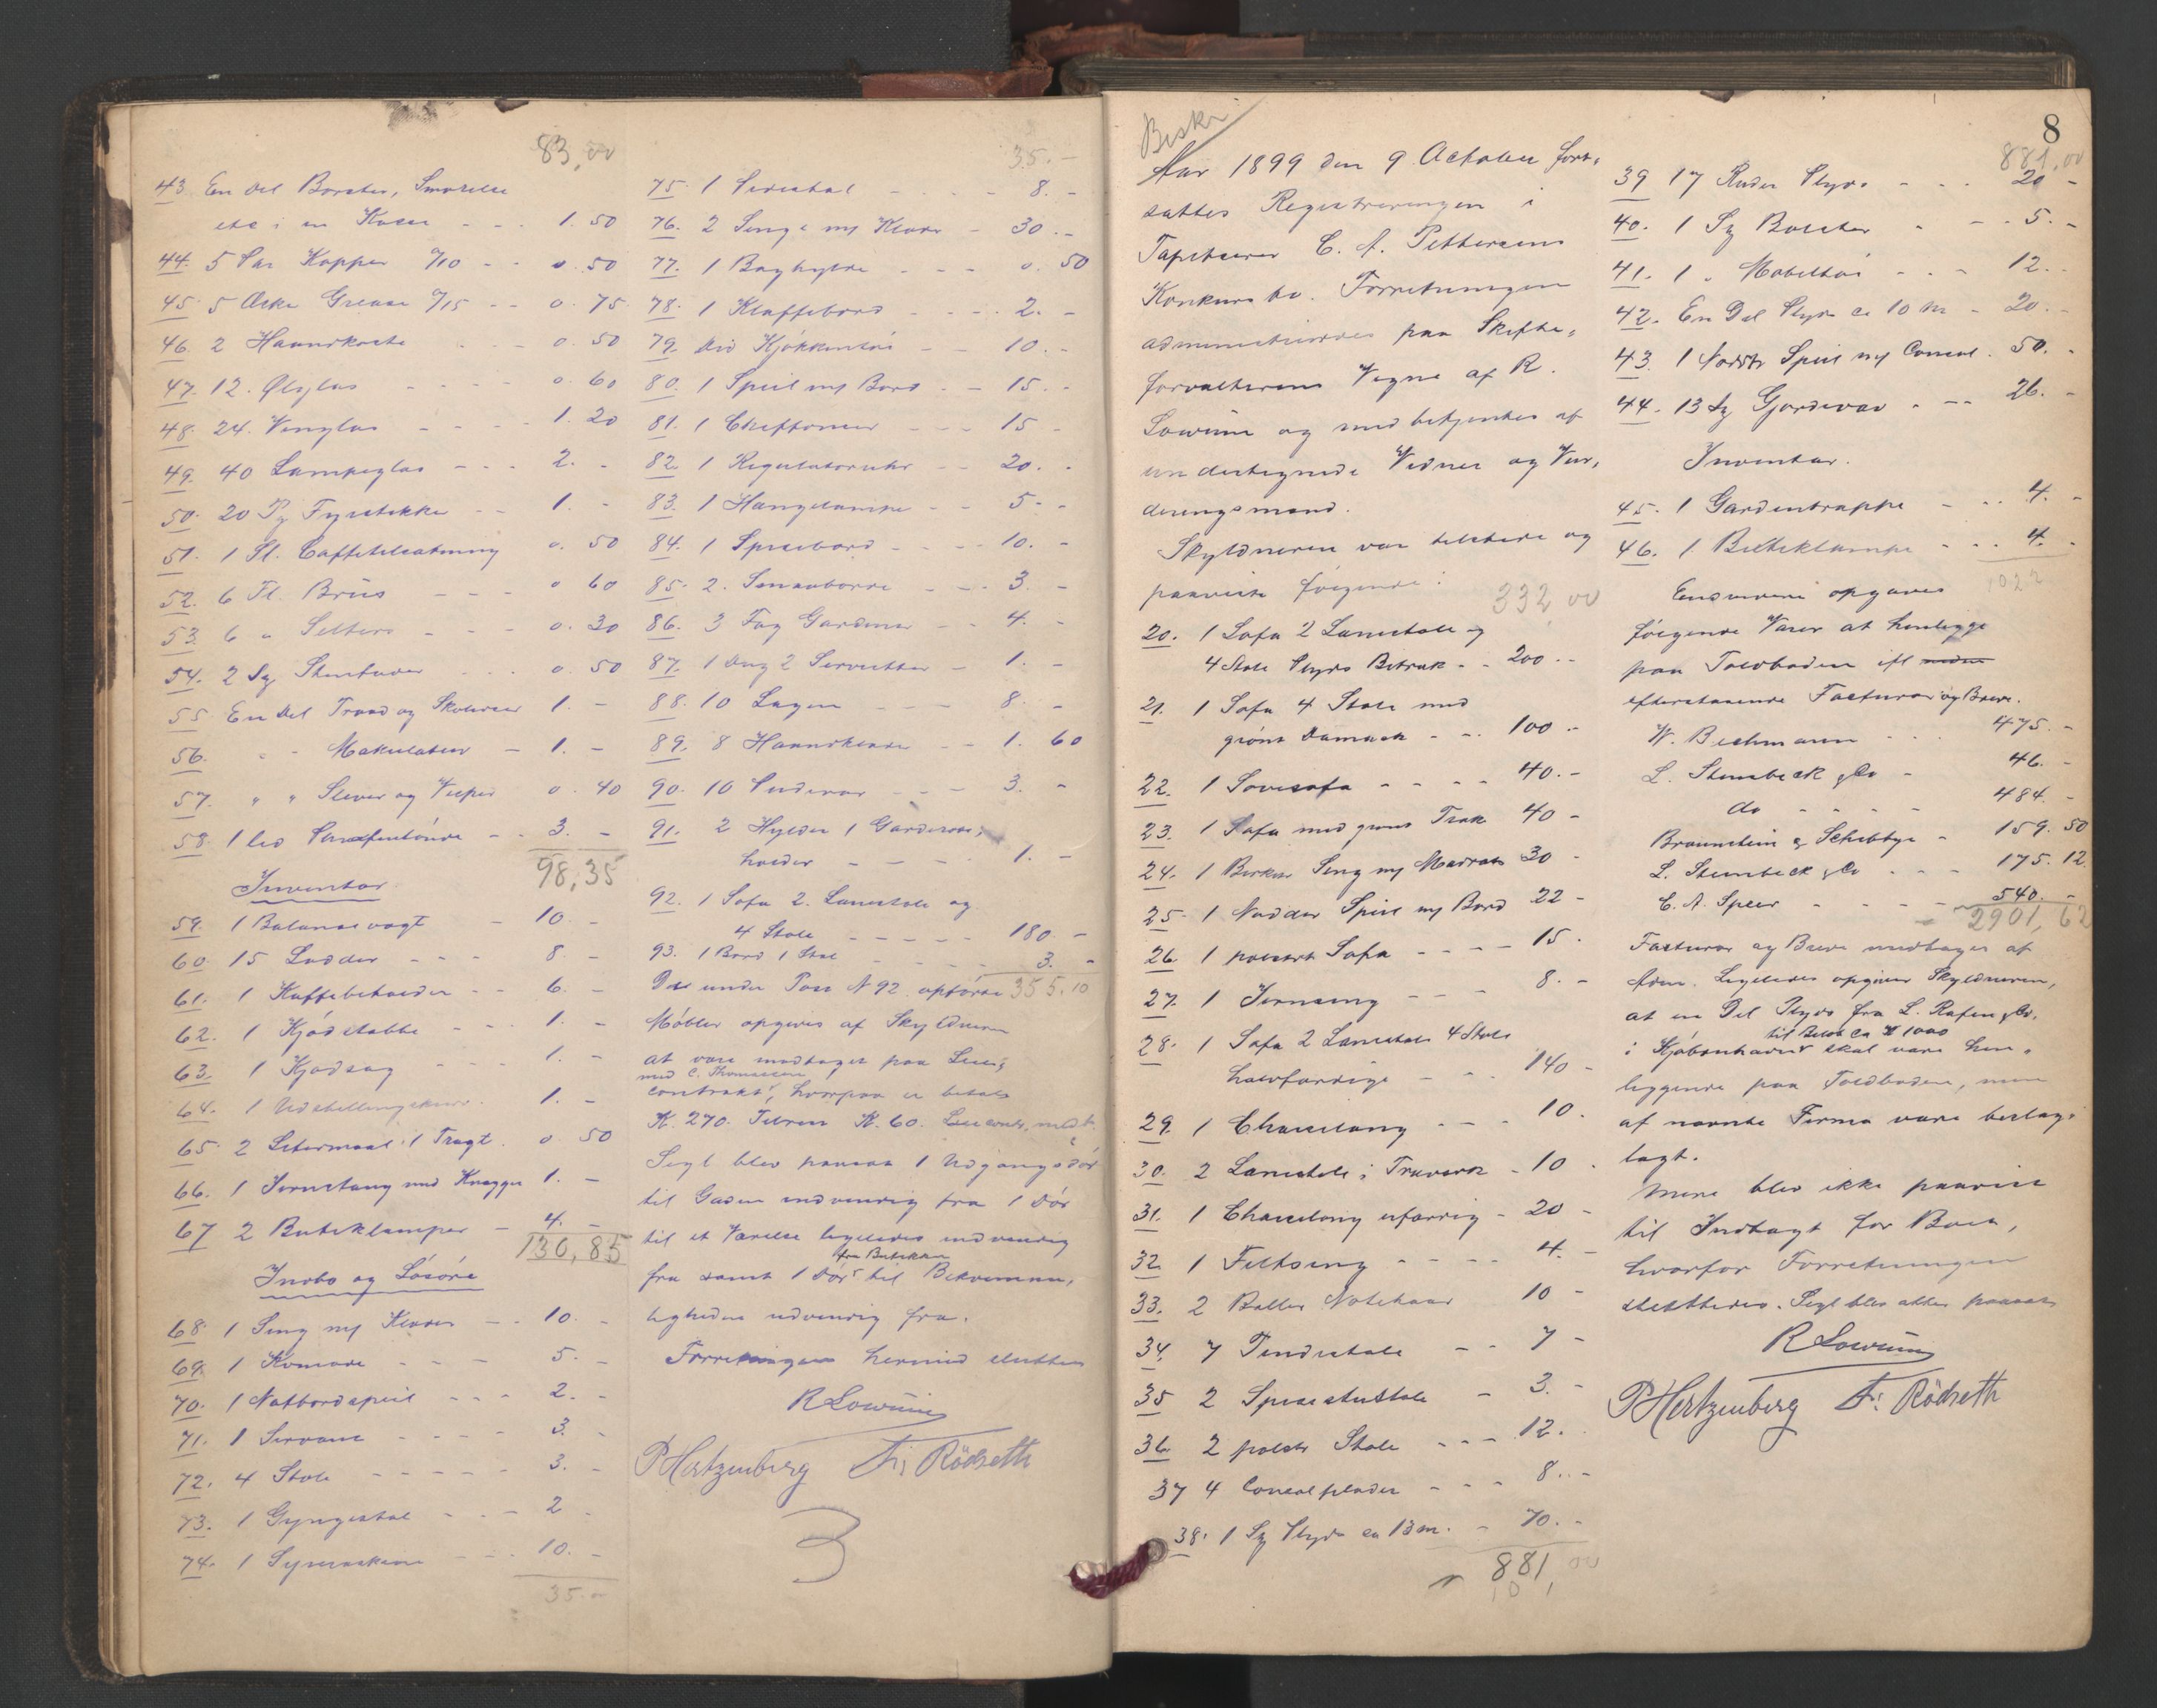 83,00
43 En Del Børster, Smørelse
etc i en Kasse - - - 1. 50
44. 5 Par Kopper a/10 - - 0. 50
45 5 Æske Grease a/15 - - 0. 75
46 2 Haandkoste - - 0. 50
47. 12. Ølglas - - - - 0. 60
48. 24. Vinglas - - - - 1. 20
49. 40 Lampeglas - - - 2. -
50. 20 Pk Fyrstikker - - 1. -
51. 1 Fl. Caffetilsætning 0. 50
52. 6 Fl. Brus - - - 0 60
53. 6 " Selters - - - 0. 30
54. 2 Stk 0. 50
55 En Del Traad og 1. -
56. " - Makulatur - 1. -
57. " " Slever og Visper 0. 40
58. 1 - - 3. -
98,35
Inventar
59. 1 Balancevægt - 10. -
60. 15 Lodder - - - 8. -
61. 1 Kaffebeholder - - 6. -
62. 1 Kjødstabbe - - - 1. -
63. 1 Kjødsag - - - 1. -
64. 1 Udstillingskurv. 1. -
65. 2 Litermaal, 1 Tragt. 0. 50
66. 1 Jernstang med Knagger 1. -
67 2 Butiklamper - 4. -
130,85
Indbo og Løsøre
68. 1 Seng m/ Klæder - - 10. -
69. 1 Komode - - - 5. -
70. 1 Natbordspeil - - - 2. -
71. 1 Servant - - - - 3. -
72. 4 Stole - - - - - 3. -
73. 1 Gyngestol - - - 2 -
74. 1 Symaskine - - - 10. -
35.00
35.-
75. 1 - - - - 8. -
76. 2 Senge m/ Klæder - 30. -
77. 1 Boghylde - - - 0. 50
78. 1 Klaffebord - - - - 2. -
79. Div Kjøkkentøi - - 10. -
80. 1 Speil m/ Bord - - 15. -
81. 1 Chiffonier - - - 15 -
82. 1 Regulatoruhr - - 20. -
83. 1 Hængelampe - - 5 - -
84. 1 Spisebord - - - - 10. -
85. 2. Smaaborde - - - 3. -
86. 3 Fag Gardiner - - 4. -
87. 1 Dug 2 Servietter - 1. -
88. 10 Lagen - - - 8. -
89. 8 Haandklæde - - 1. 60
90. 10 Pudevar - - - 3. -
91. 2 Hylder 1 Garderobe,
holder - - - - 1. -
92. 1 Sofa 2. Lænestole og
4 Stole - - - - - 180 -
93. 1 Bord 1 Stol - - - - 3. -
De under Post N 92 opførte 355.10
Møbler opgives af Skyldneren
at være modtaget paa Leie,
med C. Thomassen
contrakt, hvorpaa er betalt
K. 270. Tilrest K. 60.
Segl blev paasat 1 Udgangsdør
til Gaden indvendig fra 1 Dør
til et Værelse ligeledes indvendig
fra Butiken
fra samt 1 Dør til Bekvemme,
ligheden udvendig fra.
Forretningen hermed sluttet
R Lowum
P Hertzenberg Fr: Rödseth
3
8
Beskr
Aar 1899 den 9 October fort,
sattes Registreringen i
Tapetserer C. A. Pettersens
Konkursbo. Forretningen
administreredes paa Skifte,
forvalterens Vegne af R.
Lowum og med betjentes af
undertegnede Vidner og Vur,
deringsmænd.
Skyldneren var tilstede og
paaviste følgende:
332,00
20. 1 Sofa 2 Lænestole og
4 Stole Plyds Betræk - - 200. -
21. 1 Sofa 4 Stole med
grønt Damask - - - 100 -
22. 1 Sovesofa - - - - 40. -
23. 1 Sofa med grønt Træk 40 -
24. 1 Birken Seng m/ Madrats 30 -
25. 1 Nødder Speil m/ Bord 22 -
26. 1 polstret Sofa - - - - 15. -
27. 1 Jernseng - - - 8. -
28. 1 Sofa 2 Lænestole 4 Stole
halvfærdige - - - 140 -
29. 1 Chaiselong - - - 10.
30. 2 Lænestole i Træværk - 10 -
31. 1 Chaiselong ufærdig - 20 -
32. 1 Feltseng - - - - 4. -
33. 2 Baller Nøtehaar 10 -
34. 7 Pindestole - - 7 -
35 2 Spisestuestole - 3. -
36. 2 polstr Stole - - - 12. -
37 4 Consolplader - - - 8. -
38. 1 Stk Plyds ca 13 m. - 70. -
881,00
881,00
39 17 Ruder Plyds - - - 20 -
40. 1 Stk Bolster - - - 5. -
41. 1 " Møbeltøi - - - 12. -
42. En Del Plyds ca 10 m - 20. -
43. 1 Nødetr Speil m/ Consol. 50. -
44. 13 Stk Gjordevæv - - - 26. -
Inventar.
45. 1 Gardentrappe - - - 4. -
46. 1 Butiklampe - - - 4. -
1022
Endvidere opgaves
følgende Varer at henligge
paa Toldboden ifl
efterstaaende Facturaer og Breve.
W. Bechmann - - - 475. -
L. Steinbeck & Co - 46. -
do - - - - 484. -
Braunstein & Schibbye - 159. 50
L. Steinbeck & Co - - - 175. 12
C. A. Speer - - - - 540. -
2901,62
Facturaer og Breve medtages af
Adm. Ligeledes opgiver Skyldneren,
at en Del Plyds fra L. Rafen & Co.
til Beløb ca K 1000
i Kjøbenhavn skal være hen,
liggende paa Toldboden, men
af nævnte Firma være beslag,
lagt.
Mere blev ikke paavist
til Indtægt for Boet,
hvorfor Forretningen
sluttedes. Segl blev atter paasat
R Lowum
P Hertzenberg Fr: Rödseth